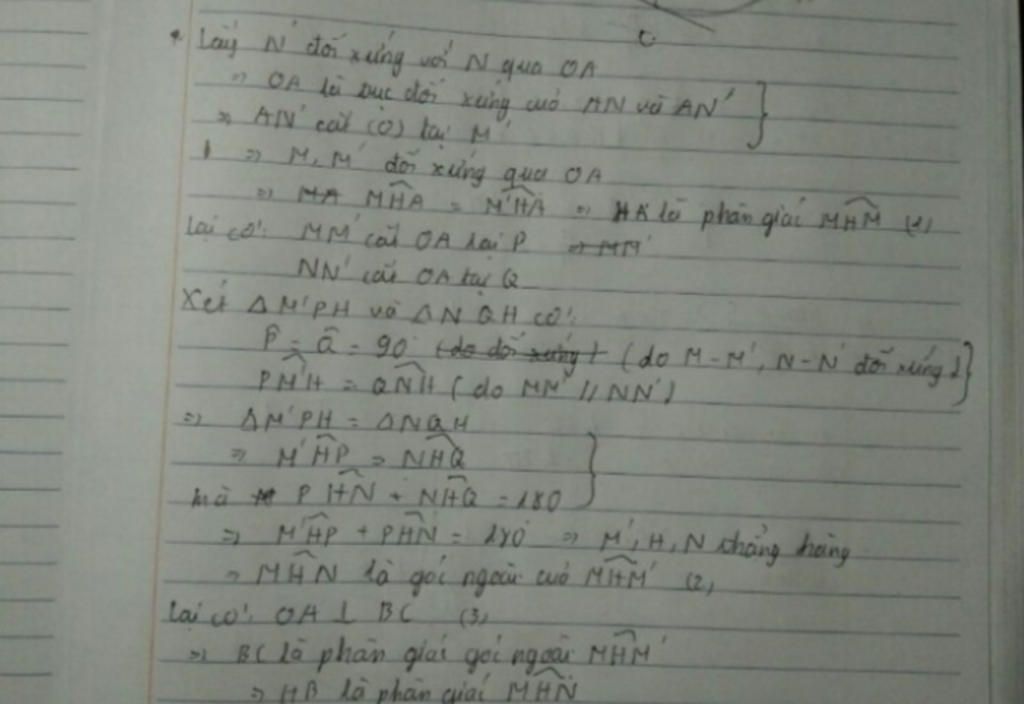 C
* Lấy N' đối xứng với N qua OA
=> OA là trục đối xứng cuả AN và AN' }
=> AN' cắt (O) tại M'
=> M, M' đối xứng qua OA
=> MA MHA = M'HA => HA là phân giái MHM' (1)
Lại có: MM' cắt OA tại P => MM'
NN' cắt OA tại Q
Xét ΔM'PH và ΔNQH có:
P = Q = 90° (do đối xứng) (do M-M', N-N' đối xứng) }
PM'H = QNH (do MM' // NN')
=> ΔM'PH = ΔNQH
=> M'HP = NHQ }
mà PHN + NHQ = 180
=> M'HP + PHN = 180° => M', H, N thẳng hàng
=> MHN là góc ngoài cuả MHM' (2)
Lại có: OA ⊥ BC (3)
=> BC là phân giái góc ngoài MHM'
=> HB là phân giái MHN